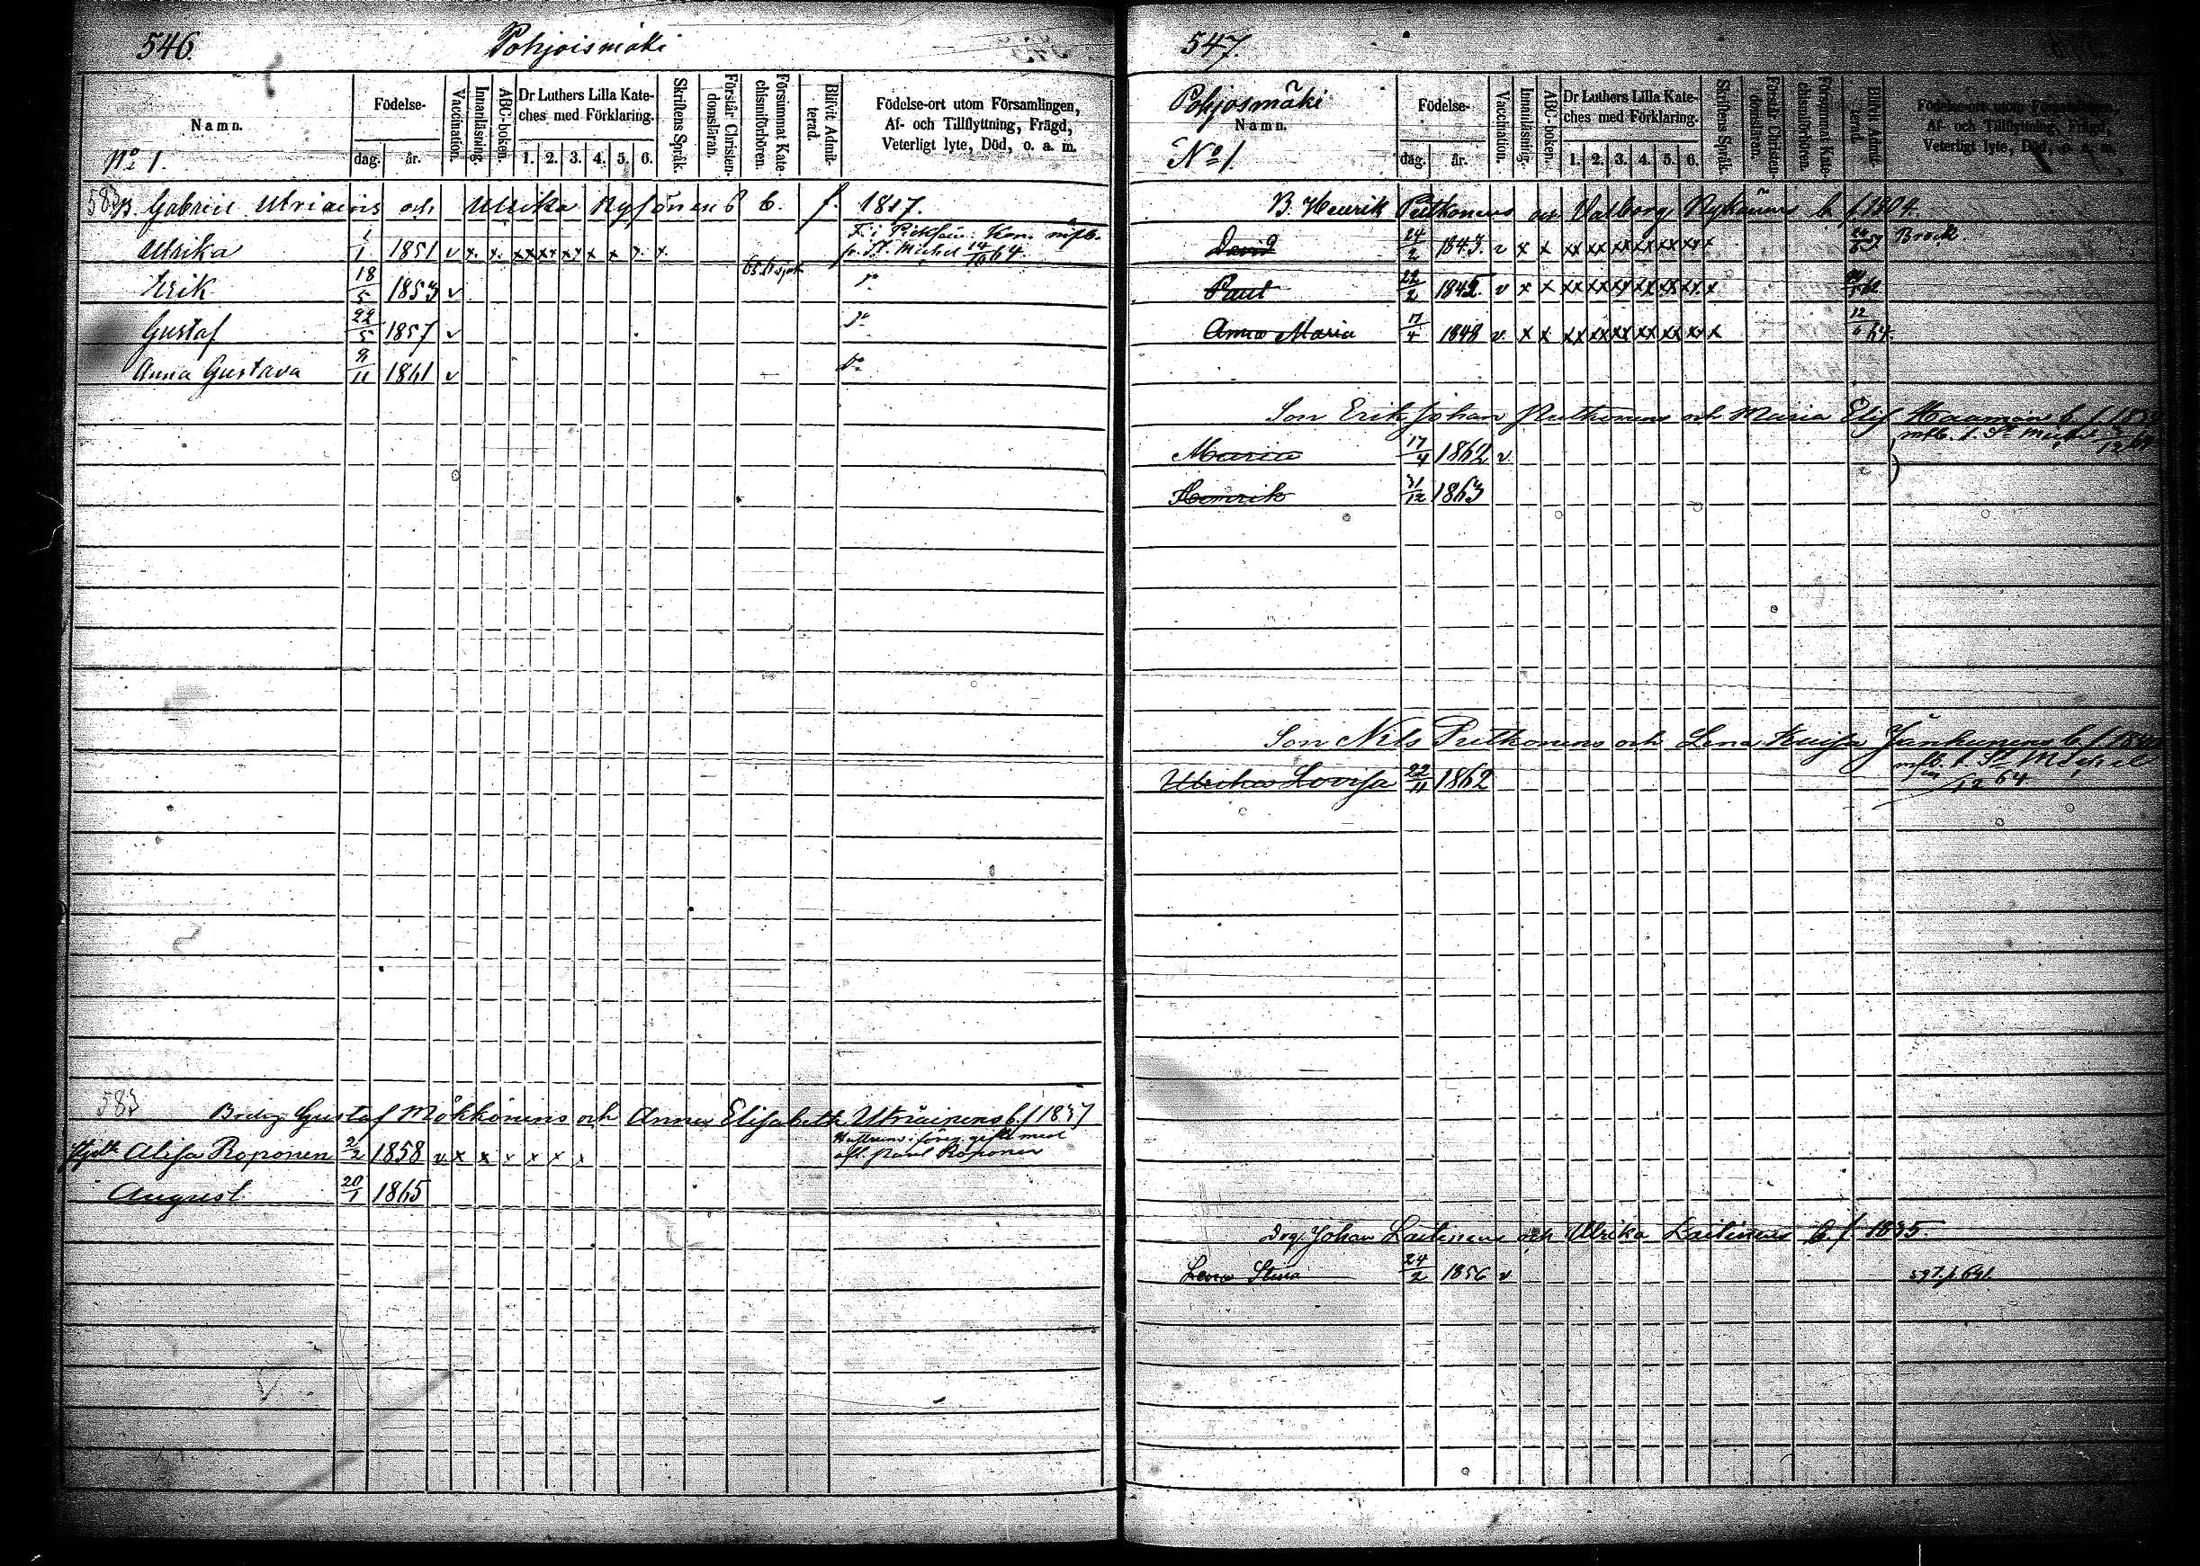 546.
Pohjoismäki
Namn.
Födelse-
dag.
år.
Vaccination.
Innanläsning.
ABC-boken.
Dr Luthers Lilla Kate-
ches med Förklaring.
1. 2. 3. 4. 5. 6.
Skriftens Språk.
Förstår Christen-
domsläran.
Försummat Kate-
chismiförhören.
Blifvit Admit-
terad.
Födelse-ort utom Församlingen,
Af- och Tillflyttning, Frägd,
Veterligt lyte, Död, o. a. m.
No 1.
583 B. Gabriel Utriains och Ullrika Nykänens b. f. 1817.
Ullrika 1/1 1851 v x x xx xx xx x x x x
fr. St. Michel 14/10 64.
Erik 18/5 1853 v
Gustaf 22/5 1857 v
Anna Gustava 9/11 1861 v
583
Gustaf Mökkönens och Anna Elisabeth Utriainens b. f. 1837
Alisa Roponen 2/2 1858 v x x x x x x
gift med
Paul Roponen
August 20/1 1865
547
Pohjosmäki
Namn.
No 1.
Födelse-
dag.
år.
Vaccination.
Innanläsning.
ABC-boken.
Dr Luthers Lilla Kate-
ches med Förklaring.
1. 2. 3. 4. 5. 6.
Skriftens Språk.
Förstår Christen-
domsläran.
Försummat Kate-
chismiförhören.
Blifvit Admit-
terad.
Födelse-ort utom Församlingen,
Af- och Tillflyttning, Frägd,
Veterligt lyte, Död, o. a. m.
B. Henrik Putkonens och Valborg Nykänens b. f. 1804.
David 24/2 1843. v x x xx xx xx xx xx xx x
Paul 22/2 1845. v x x xx xx xx xx xx xx x
Anna Maria 17/4 1848 v. x x xx xx xx xx xx xx x 12/6 64.
Son Erik Johan Putkonens och Maria Elis Haaman b. f.
Maria 17/4 1862 v.
Henrik 31/12 1863
Son Nils Putkonens och Lena Kaisa b. f.
St Michel
12 64
Ulrika Lovisa 22/11 1862
Johan Laitinens och Ullrika Laitinens b. f. 1835.
Lena Stina 24/2 1856 v